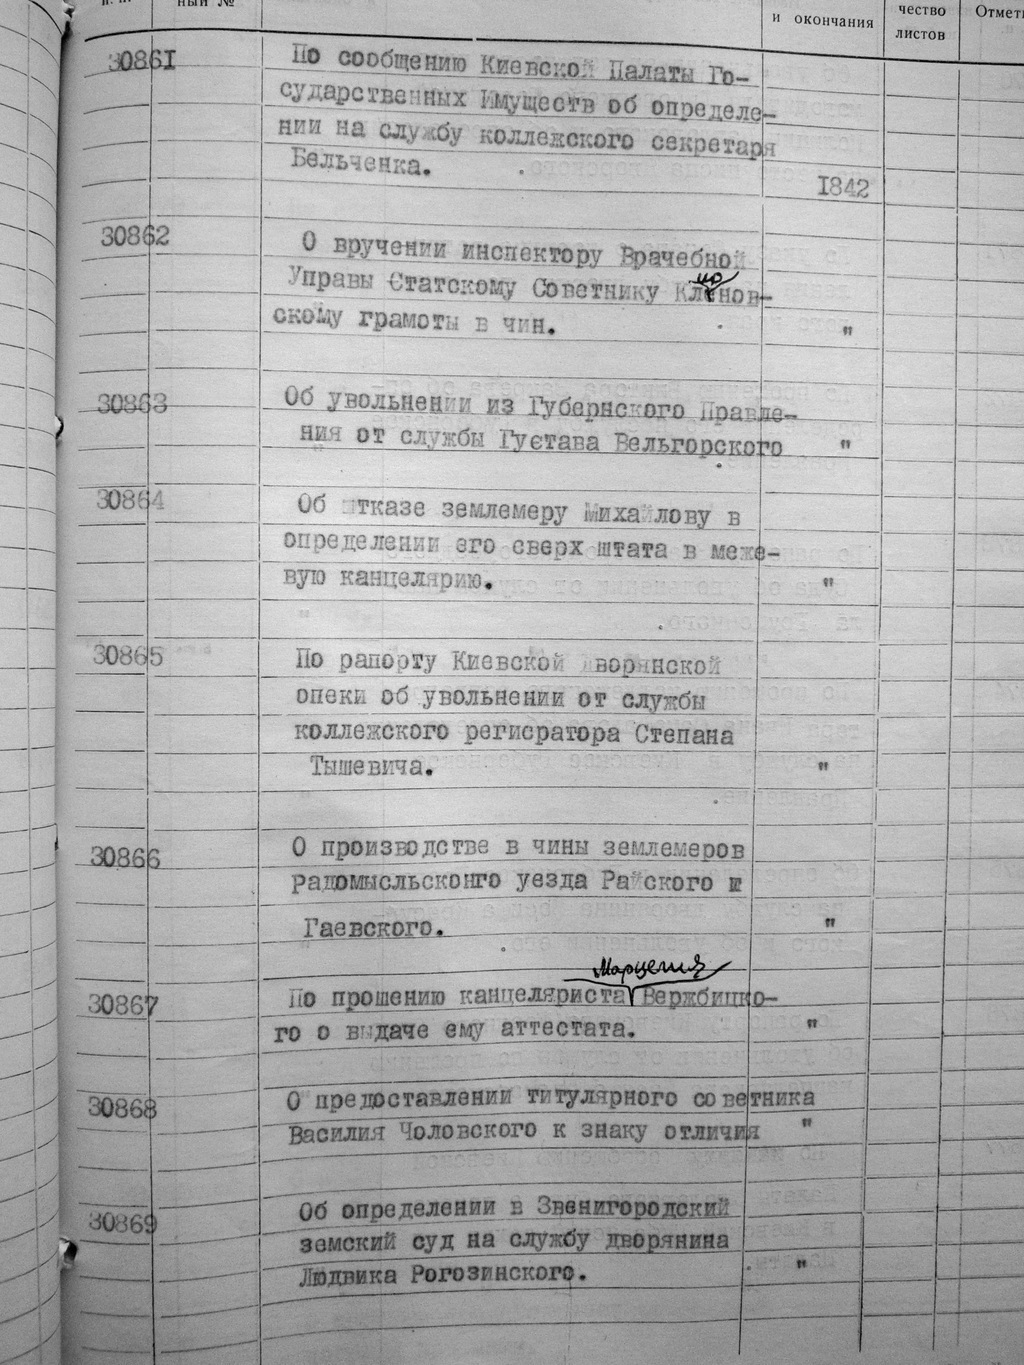 п. п.
ный №
и окончания
чество
листов
Отмет
30861
По сообщению Киевской Палаты Го-
сударственных Имуществ об определе-
нии на службу коллежского секретаря
Бельченка.
1842
30862
О вручении инспектору Врачебной
Управы Статскому Советнику Кленов-
ио
скому грамоты в чин.
"
30863
Об увольнении из Губернского Правле-
ния от службы Густава Вельгорского "
30864
Об отказе землемеру Михайлову в
определении его сверх штата в меже-
вую канцелярию. "
30865
По рапорту Киевской дворянской
опеки об увольнении от службы
коллежского регисратора Степана
Тышевича. "
30866
О производстве в чины землемеров
радомысльсконго уезда Райского и
Гаевского. "
Марцелия
30867
По прошению канцеляриста Вержбицко-
го о выдаче ему аттестата. "
30868
О предоставлении титулярного советника
Василия Чоловского к знаку отличия "
30869
Об определении в Звенигородский
земский суд на службу дворянина
Людвика Рогозинского. "